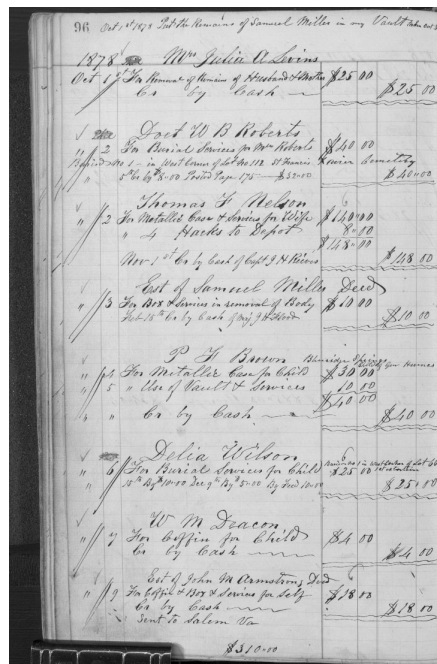 96 Oct 1st 1878 Put the Remains of Samuel Miller in my Vault
1878 Mrs Julia A Levins
Oct 1st For Removal of Remains of Husband & Mother $25 00
Cr by Cash $25 00
Doct W B Roberts
" 2 For Burial Services for Mrs Roberts $40 00
Buried No 1 - in West Corner of Lot No 112 St Francis Cemetery
5th Cr By $8.00 Posted Page 175 $32.00 $40 00
Thomas F Nelson
" 2 For Metallic Case & Services for Wife $140 00
" 4 Hacks to Depot 8 00
$148 00
Nov 1st Cr by Cash of Capt J H Reeves $148 00
Est of Samuel Miller Decd
" 3 For Box & Services in removal of Body $10 00
15th Cr by Cash of J H Flood $10 00
P F Brown
" 4 For Metallic Case for Child $30 00
" 5 " Use of Vault & Services 10 00
$40 00
" " Cr by Cash $40 00
Delia Wilson
" 6 For Burial Services for Child $25 00
15th By $10.00 Dec 9th By $5.00 By Fred 10.00 $25 00
W M Deacon
" 7 For Coffin for Child $4 00
Cr by Cash $4 00
Est of John M Armstrong Decd
" 9 For Coffin & Box & Services for Self $18 00
Cr by Cash $18 00
Sent to Salem Va
$310.00